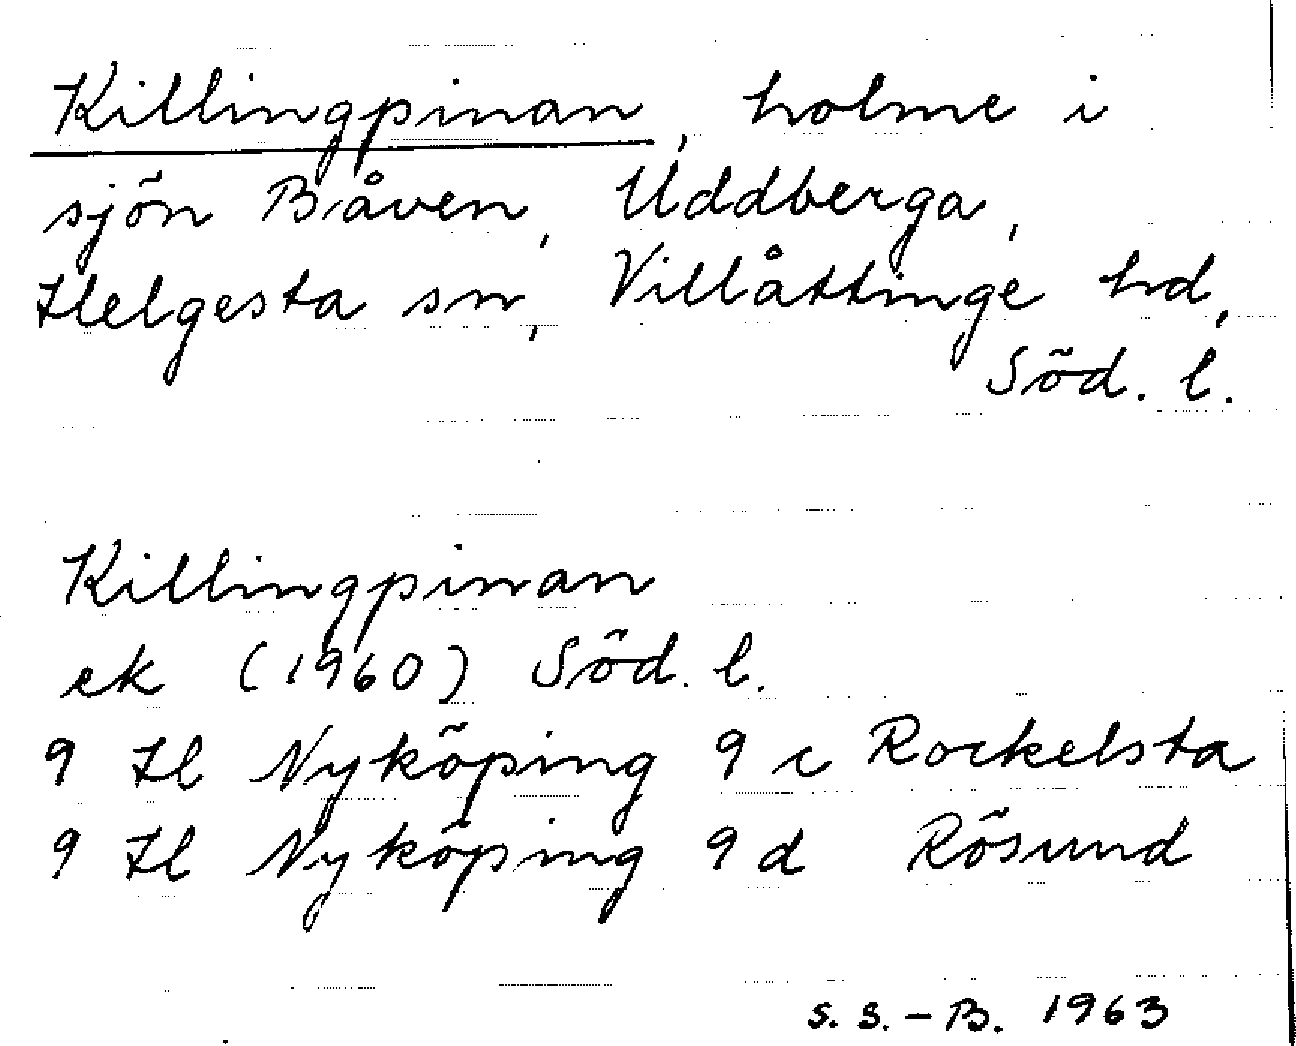 Killingpinan, holme i
sjön Båven, Uddberga,
Helgesta sn, Villåttinge hd,
Söd. l.
Killingpinan
ek (1960) Söd. l.
9 H Nyköping 9 c Rockelsta
9 H Nyköping 9 d Rösund
S. S.-B. 1963